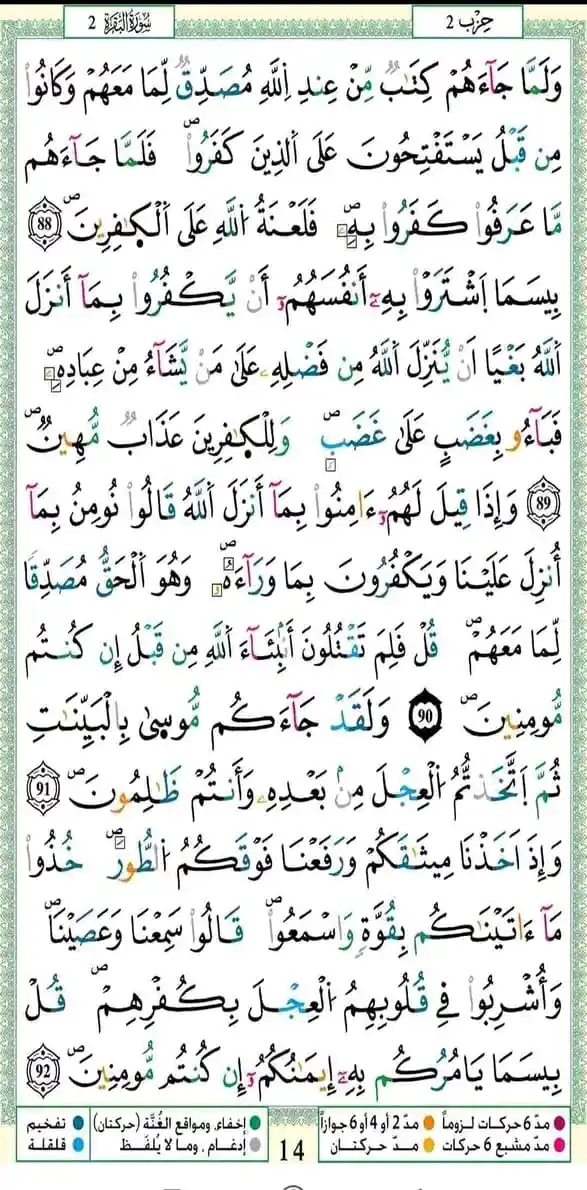 سُورَةُ البَقَرَةِ 2
حِزْب 2
وَلَمَّا جَآءَهُمْ كِتَٰبٌ مِّنْ عِندِ اِ۬للَّهِ مُصَدِّقٌ لِّمَا مَعَهُمْ وَكَانُواْ
مِن قَبْلُ يَسْتَفْتِحُونَ عَلَى اَ۬لذِينَ كَفَرُواْۖ فَلَمَّا جَآءَهُم
مَّا عَرَفُواْ كَفَرُواْ بِهِۦۖ فَلَعْنَةُ اُ۬للَّهِ عَلَى اَ۬لْكٰ۪فِرِينَۖ 88
بِيسَمَا اَ۪شْتَرَوْاْ بِهِۦٓ أَنفُسَهُمُۥٓ أَنْ يَّكْفُرُواْ بِمَآ أَنزَلَ
اَ۬للَّهُ بَغْيًا اَنْ يُّنَزِّلَ اَ۬للَّهُ مِن فَضْلِهِۦ عَلَىٰ مَنْ يَّشَآءُ مِنْ عِبَادِهِۦۖ
فَبَآءُو بِغَضَبٍ عَلَىٰ غَضَبٍۖ وَلِلْكٰ۪فِرِينَ عَذَابٌ مُّهِينٌۖ
89 وَإِذَا قِيلَ لَهُمُۥٓ ءَامِنُواْ بِمَآ أَنزَلَ اَ۬للَّهُ قَالُواْ نُومِنُ بِمَآ
أُنزِلَ عَلَيْنَا وَيَكْفُرُونَ بِمَا وَرَآءَهُۥۖ وَهُوَ اَ۬لْحَقُّ مُصَدِّقًا
لِّمَا مَعَهُمْۖ قُلْ فَلِمَ تَقْتُلُونَ أَنۢبِئَآءَ اَ۬للَّهِ مِن قَبْلُ إِن كُنتُم
مُّومِنِينَۖ 90 وَلَقَدْ جَآءَكُم مُّوسىٰ بِالْبَيِّنَٰتِ
ثُمَّ اَ۪تَّخَذتُّمُ اُ۬لْعِجْلَ مِنۢ بَعْدِهِۦ وَأَنتُمْ ظَٰلِمُونَۖ 91
وَإِذَ اَخَذْنَا مِيثَٰقَكُمْ وَرَفَعْنَا فَوْقَكُمُ اُ۬لطُّورَۖ خُذُواْ
مَآ ءَاتَيْنَٰكُم بِقُوَّةٍ وَاسْمَعُواْۖ قَالُواْ سَمِعْنَا وَعَصَيْنَاۖ
وَأُشْرِبُواْ فِي قُلُوبِهِمُ اُ۬لْعِجْلَ بِكُفْرِهِمْۖ قُلْ
بِيسَمَا يَامُرُكُم بِهِۦٓ إِيمَٰنُكُمُۥٓ إِن كُنتُم مُّومِنِينَۖ 92
مدّ 6 حركات لزوماً مدّ 2 أو 4 أو 6 جوازاً
مدّ مشبع 6 حركات مـدّ حركتـان
14
إخفاء، ومواقع الغُنَّة (حركتان) تفخيم
إدغام، وما لا يُلفَـظ قلقلة